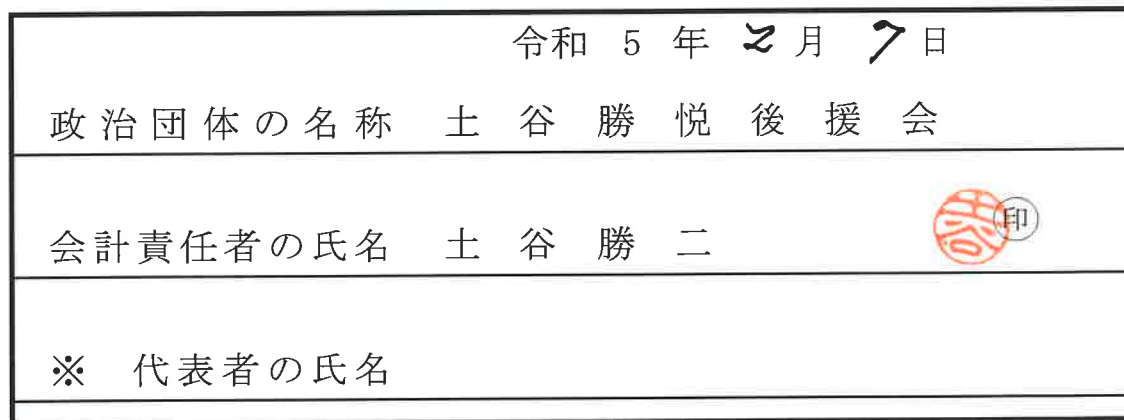 令和 5 年 2月 7日
政治団体の名称 土谷勝悦後援会
会計責任者の氏名 土谷勝二 土谷 印
※ 代表者の氏名